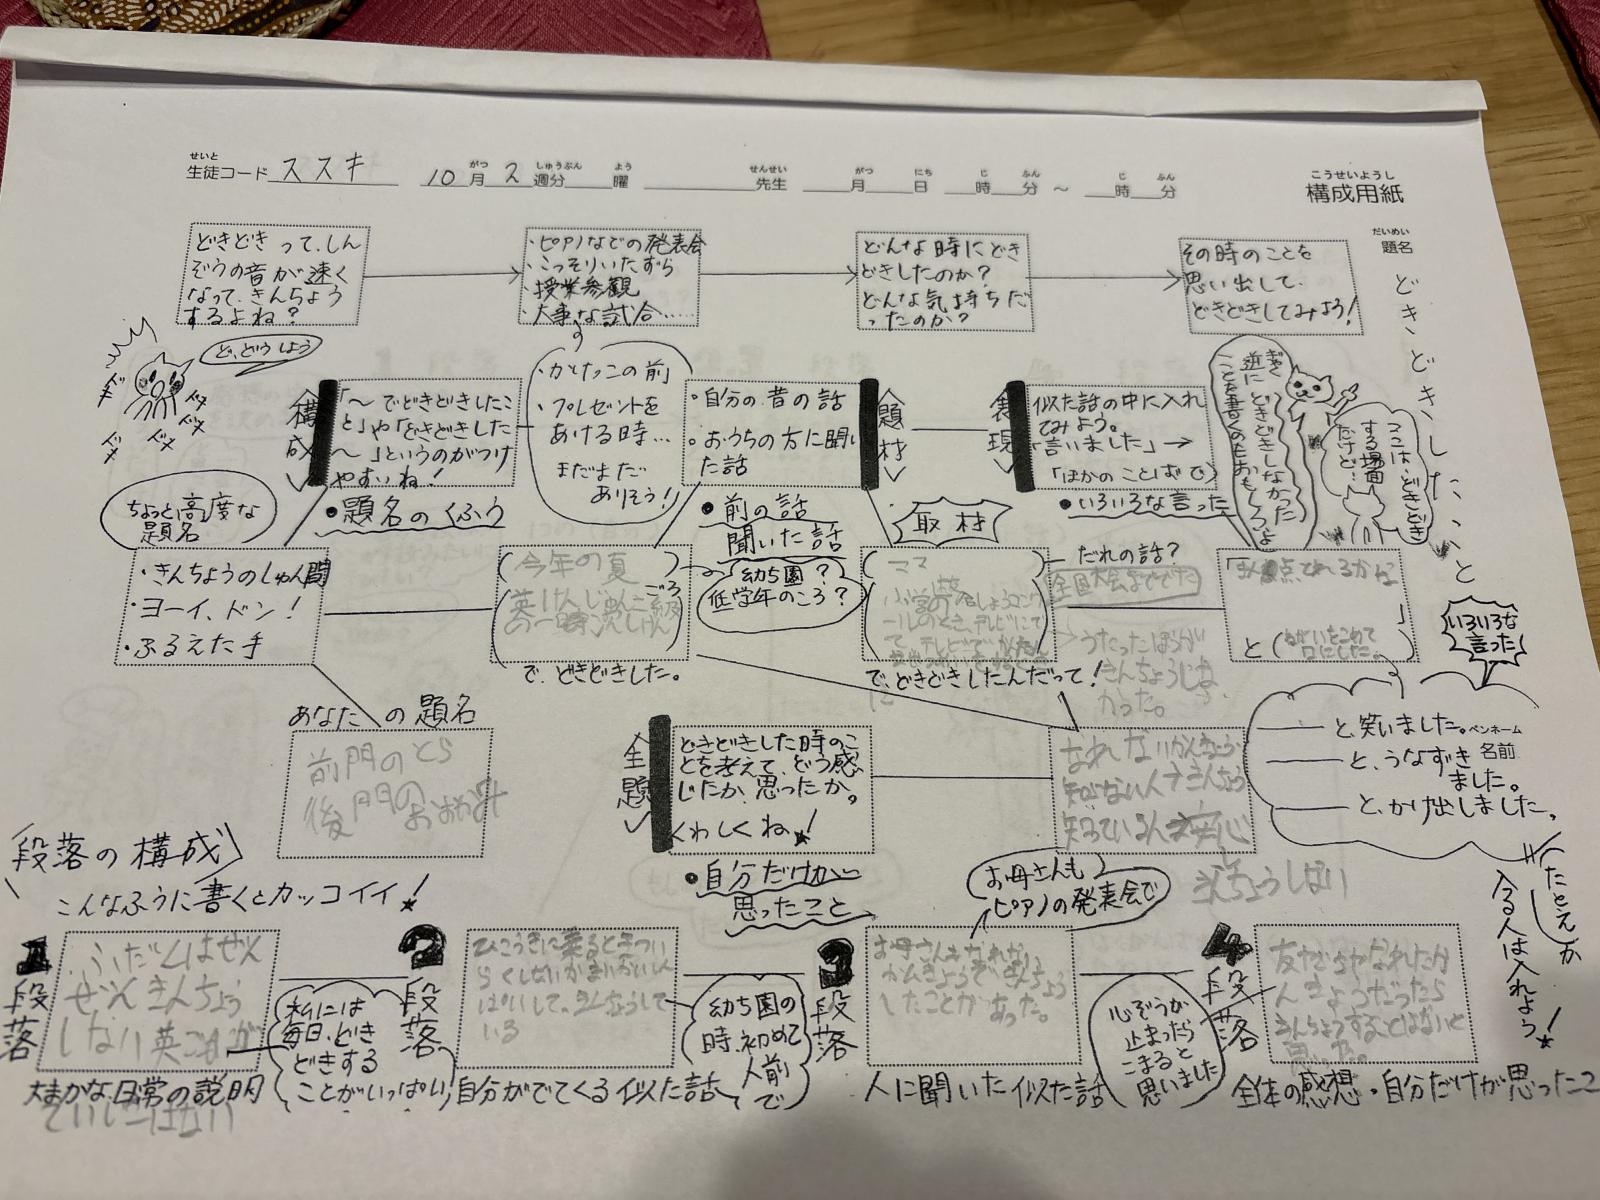 せいと
生徒コード ススキ
10月 2週分 曜
がつ しゅうぶん よう
せんせい がつ にち じ ふん じ ふん
先生 月 日 時 分 ~ 時 分
こうせいようし
構成用紙
だいめい
題名
どきどきした
どきどきって、しん
ぞうの音が速く
なって、きんちょう
するよね?
・ピアノなどの発表会
・こっそりいたずら
・授業参観
・大事な試合……
どんな時にどき
どきしたのか?
どんな気持ちだ
ったのか?
その時のことを
思い出して、
どきどきしてみよう!
ど、どうしよう
ドキ
ドキ
ドキ
ドキ
構成
「~でどきどきしたこ
と」や「どきどきした
~」というのがつけ
やすいね!
・題名のくふう
・かけっこの前
・プレゼントを
あける時…
まだまだ
ありそう!
・自分の昔の話
・おうちの方に聞い
た話
・前の話
聞いた話
題材
表現
似た話の中に入れ
てみよう。
「言いました」→
「ほかのことばで」
・いろいろな言った
ぎゃく
逆にどきどきしなかった
ことを書くのもおもしろいよ
ここは、どきどき
する場面
だけど…
ちょっと高度な
題名
・きんちょうのしゅん間
・ヨーイ、ドン!
・ふるえた手
今年の夏
ごろ
で、どきどきした。
幼ち園?
低学年のころ?
取材
ママ
で、どきどきしたんだって!
だれの話?
全国大会まででた
うたったほうが
きんちょうしな
かった。
」
と
いろいろな
言った
と、笑いました。
ペンネーム
名前
と、うなずき
ました。
と、かけ出しました。
たとえが
入る人は入れよう!
あなたの題名
前門のとら
後門のおおかみ
主題
どきどきした時のこ
とを考えて、どう感
じたか、思ったか。
くわしくね!
・自分だけが
思ったこと
なれないかんきょう
知らない人→きんちょう
知っている人→安心
段落の構成
こんなふうに書くとカッコイイ!
お母さんも
ピアノの発表会で
1段落
ふだんはぜん
ぜんきんちょう
しない
大まかな日常の説明
私には
毎日、どき
どきする
ことがいっぱい
2段落
ひこうきに乗ると
自分がでてくる似た話
幼ち園の
時、初めて
人前で
3段落
お母さんもなれない
かんきょうできんちょう
したことがあった。
人に聞いた似た話
心ぞうが
止まったら
こまると
思いました
4段落
友だちやなれたか
んきょうだったら
きんちょうすることはないと
思った。
全体の感想・自分だけが思ったこ